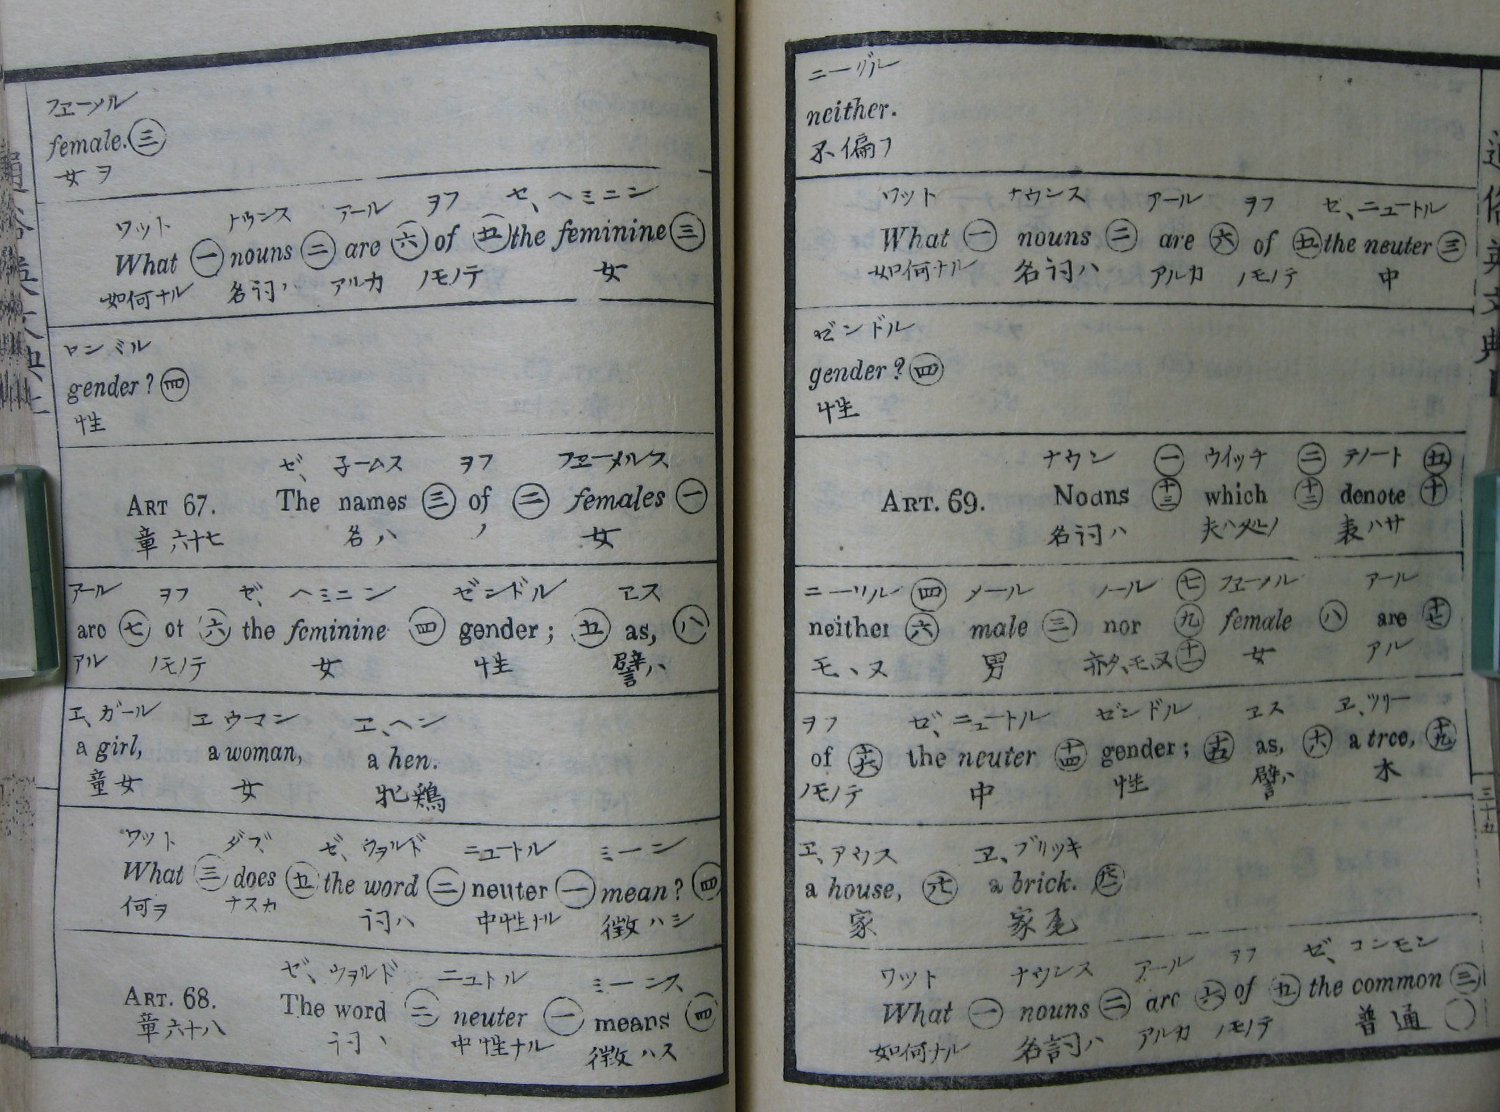 ヲヱーメル
female. 三
女ヲ
ワット ナウンス アール ヲフ ゼ、ヘミニン
What 一 nouns 二 are 六 of 五 the feminine 三
如何ナル 名詞ハ アルカ ノモノテ 女
gender? 四
性
ゼ、 子ームス ヲフ
ART 67. The names 三 of 二 females 一
章六十七 名ハ ノ 女
アール ヲフ ゼ、 ヘミニン ゼンドル ヱス
are 七 of 六 the feminine 四 gender; 五 as, 八
アル ノモノテ 女 性 譬ハ
ヱ、ガール ヱウマン ヱ、ヘン
a girl, a woman, a hen.
童女 女 牝鶏
ワット ダブ ゼ、ウヲルド ニュートル ミーン
What 三 does 五 the word 二 neuter 一 mean? 四
何ヲ ナスカ 詞ハ 中性ナル 徴ハシ
ゼ、ウヲルド ニュトル ミーンス
ART. 68. The word 二 neuter 一 means 四
章六十八 詞ハ 中性ナル 徴ハス
neither.
不偏フ
ワット ナウンス アール ヲフ ゼ、ニュートル
What 一 nouns 二 are 六 of 五 the neuter 三
如何ナル 名詞ハ アルカ ノモノテ 中
ゼンドル
gender? 四
性
ナウン 一 ウイッチ 二 テノート 五
ART. 69. Nouns 十三 which 十二 denote 十
名詞ハ 表ハサ
ニーリル 四 メール ノール 七 アール 十七
neither 六 male 三 nor 九 female 八 are
モ、ヌ 男 十一 女 アル
ヲフ ゼ、ニュートル ゼンドル ヱス ヱ、ツリー
of 十六 the neuter 十四 gender; 十五 as, 六 a tree, 十九
ノモノテ 中 性 譬ハ 木
ヱ、アウス ヱ、ブリッキ
a house, a brick.
家 家瓦
ワット ナウンス アール ヲフ ゼ、コンモン
What 一 nouns 二 are 六 of 五 the common 三
如何ナル 名詞ハ アルカ ノモノテ 普通
通俗英文典
三十五